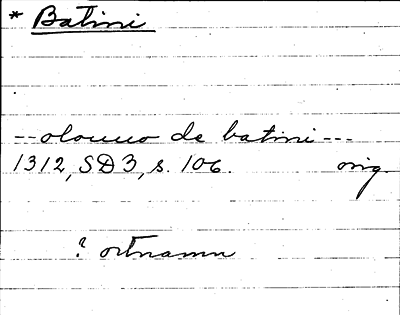 * Batini
-- olouuo de batini ---
1312, SD3, s. 106. orig.
? ortnamn